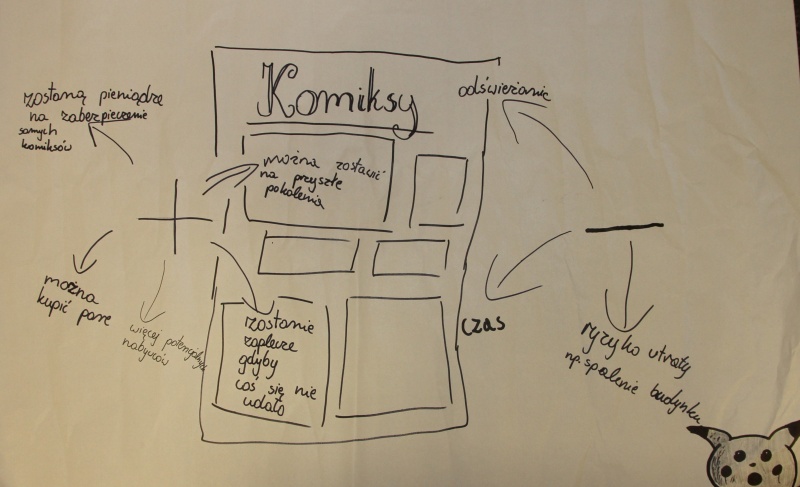 Komiksy
zostaną pieniądze
na zabezpieczenie
samych
komiksów
można zostawić
na przyszłe
pokolenia
odświeżanie
można
kupić parę
więcej potencjalnych
nabywców
zostanie
zaplecze
gdyby
coś się nie
udało
czas
ryzyko utraty
np. spalenie budynku